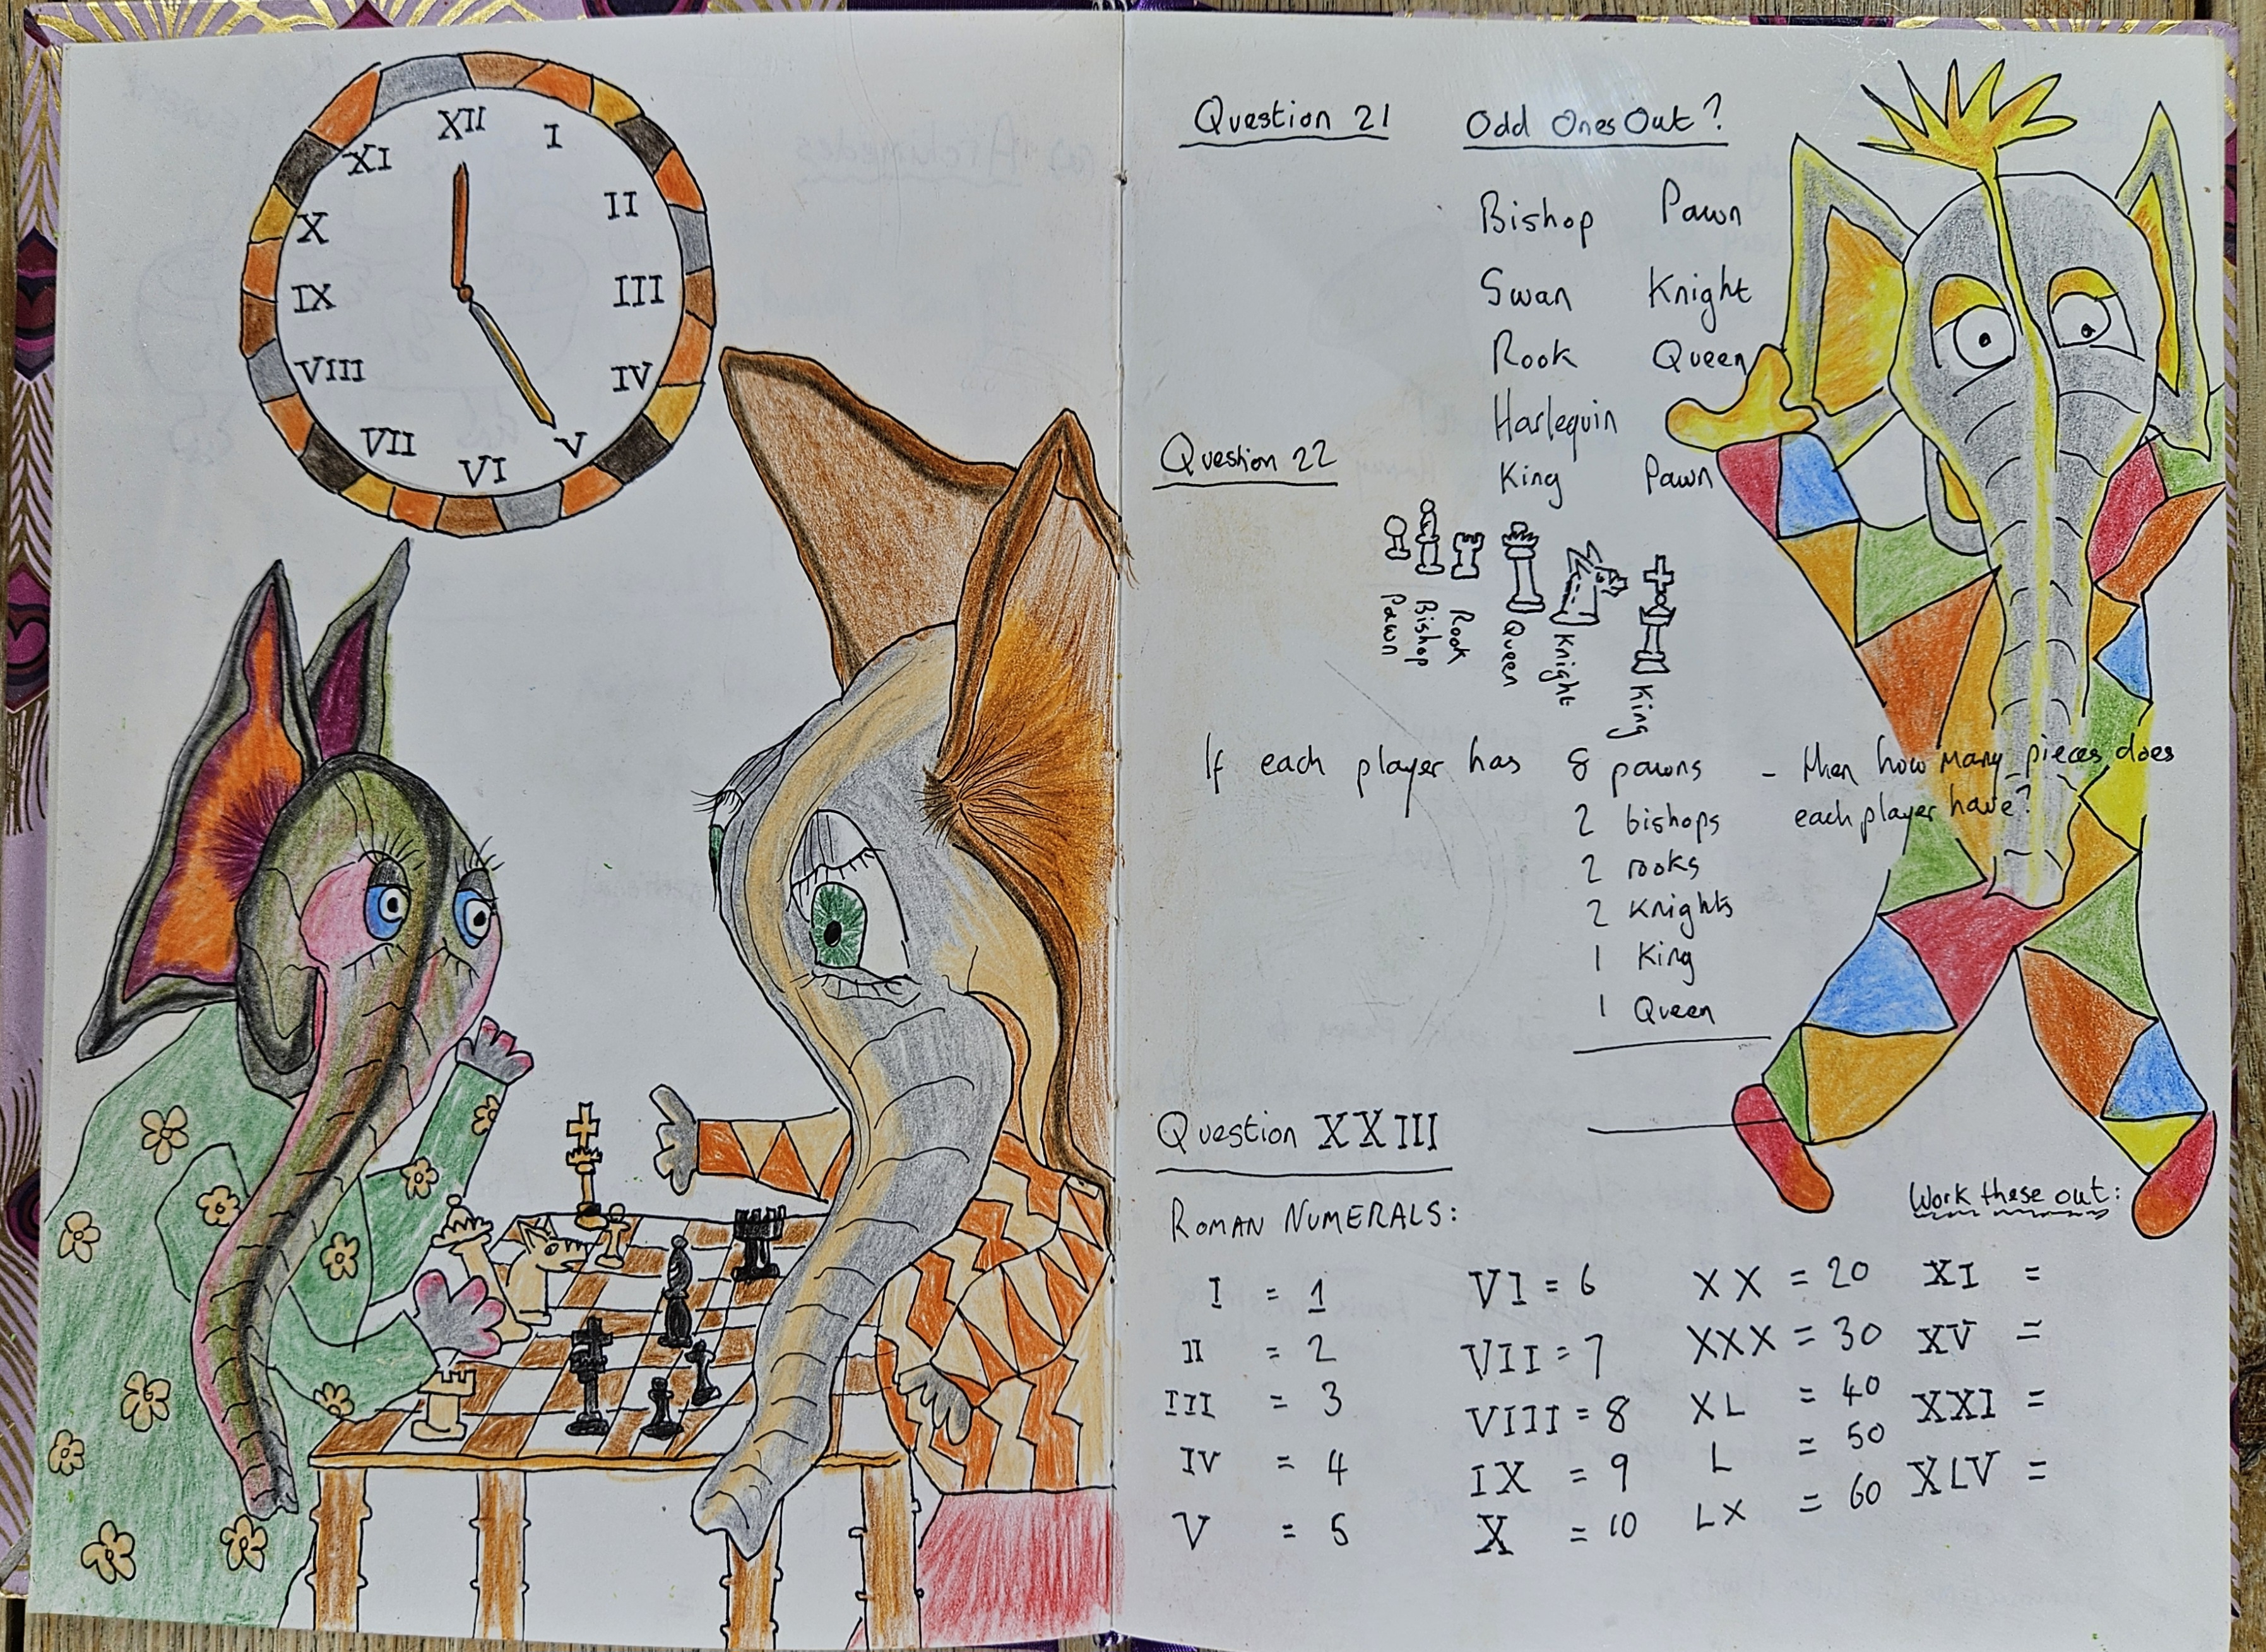 XII
I
II
III
IV
V
VI
VII
VIII
IX
X
XI
Question 21
Odd Ones Out?
Bishop Pawn
Swan Knight
Rook Queen
Harlequin
King Pawn
Question 22
Pawn
Bishop
Rook
Queen
Knight
King
If each player has 8 pawns - then how many pieces does
2 bishops each player have?
2 rooks
2 Knights
1 King
1 Queen
Question XXIII
ROMAN NUMERALS:
Work these out:
I = 1 VI = 6 XX = 20 XI =
II = 2 VII = 7 XXX = 30 XV =
III = 3 VIII = 8 XL = 40 XXI =
IV = 4 IX = 9 L = 50 XLV =
V = 5 X = 10 LX = 60